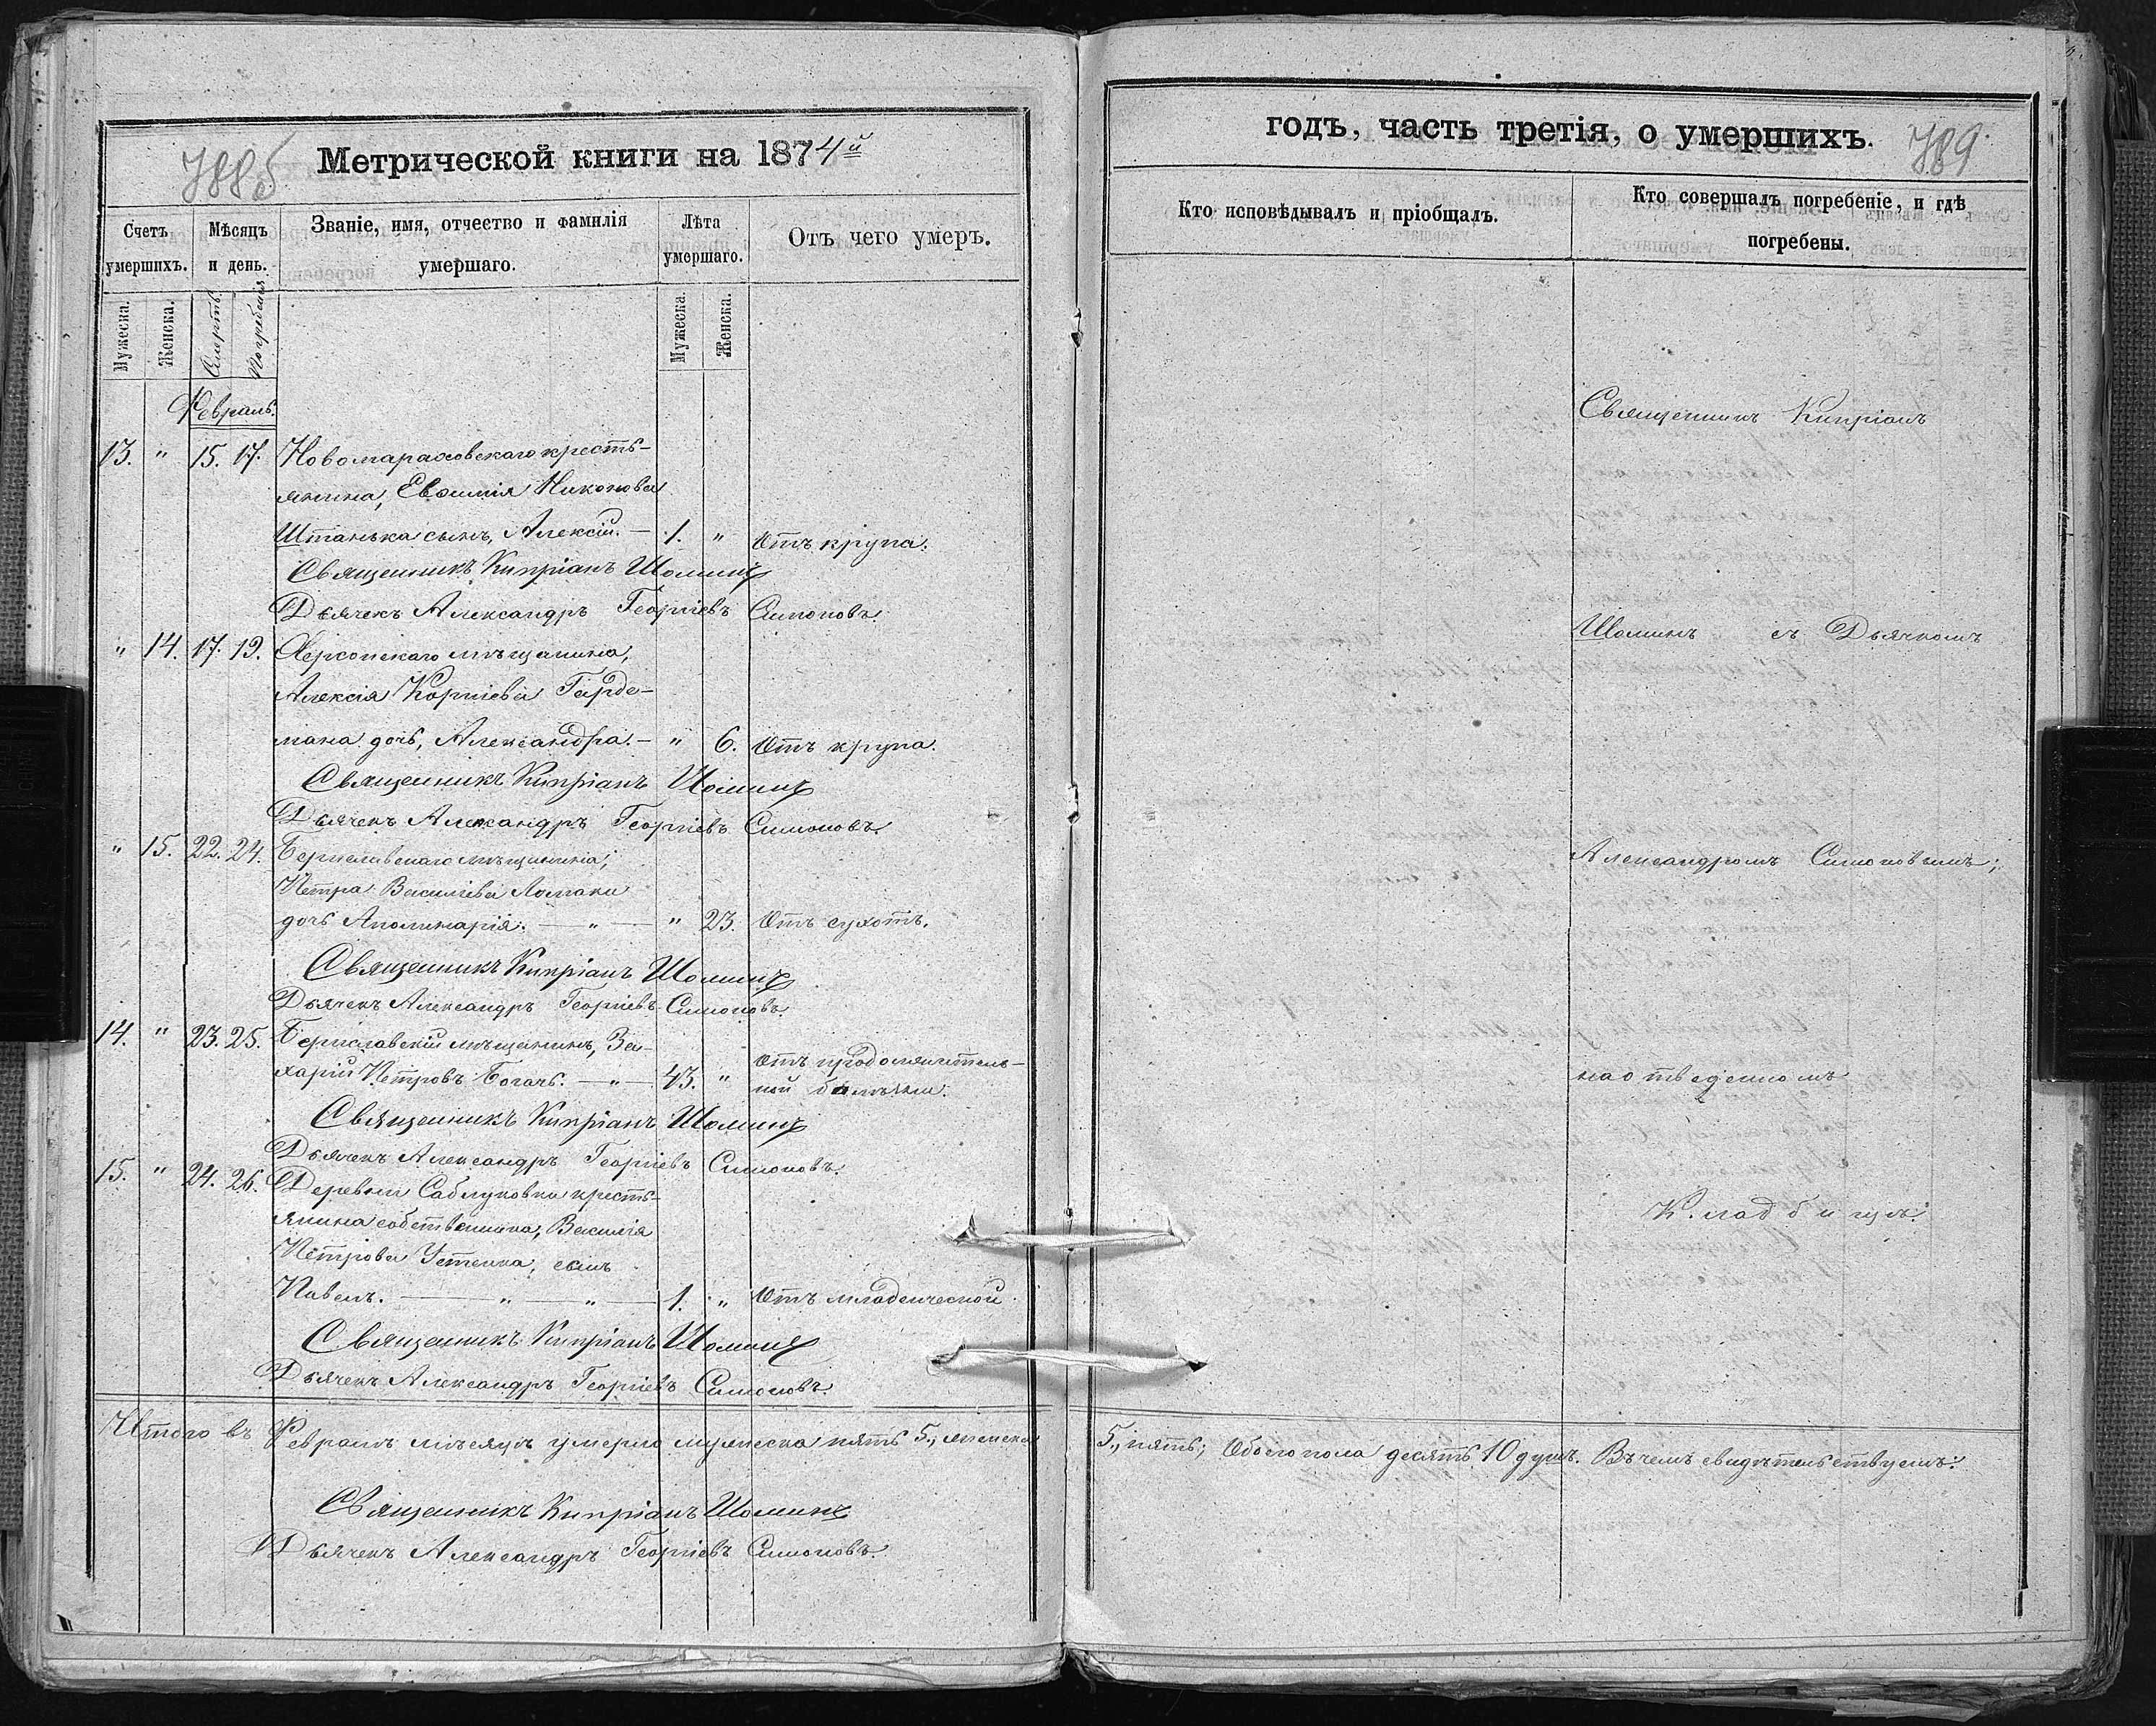 788б
Метрической книги на 1874й
Счетъ умершихъ.
Мѣсяцъ и день.
Званіе, имя, отчество и фамилія умершаго.
Лѣта умершаго.
Отъ чего умеръ.
Мужеска.
Женска.
Смерть
Погребенія
Мужеска.
Женска.
Февраль.
13. " 15. 17. Новомараховскаго кресть-
янина, Евфимія Никонова
Штанька сынъ, Алексій. — 1. " Отъ крупа.
Священникъ Кипріанъ Шоминъ
Дьячекъ Александръ Георгіевъ Симоновъ.
" 14. 17. 19. Херсонскаго мѣщанина,
Алексія Корніева Гарде-
мана дочь, Александра. — " 6. Отъ крупа.
Священникъ Кипріанъ Шоминъ
Дьячекъ Александръ Георгіевъ Симоновъ.
" 15. 22. 24. Бериславскаго мѣщанина,
Петра Васильева Ломаки
дочь Аполинарія. — " — " 23. Отъ сухотъ.
Священникъ Кипріанъ Шоминъ
Дьячекъ Александръ Георгіевъ Симоновъ.
14. " 23. 25. Бериславскій мѣщанинъ, За-
харій Петровъ Богачъ. — " — 43. " Отъ продолжитель-
ной болѣзни.
Священникъ Кипріанъ Шоминъ
Дьячекъ Александръ Георгіевъ Симоновъ.
15. " 24. 26. Деревни Саблуковки кресть-
янина собственника, Василія
Петрова Устенка, сынъ
Павелъ. — " — " — 1. " Отъ младенческой.
Священникъ Кипріанъ Шоминъ
Дьячекъ Александръ Георгіевъ Симоновъ.
Итого въ Февралѣ мѣсяцѣ умерло мужеска пять 5., женска
Священникъ Кипріанъ Шоминъ
Дьячекъ Александръ Георгіевъ Симоновъ.
годъ, часть третія, о умершихъ.
789
Кто исповѣдывалъ и пріобщалъ.
Кто совершалъ погребеніе, и гдѣ погребены.
Священникъ Кипріанъ
Шоминъ съ Дьячкомъ
Александромъ Симоновымъ;
на отведенномъ
Кладбищѣ.
5., пять; Обоего пола десять 10 душъ. Въ чемъ свидѣтельствуемъ: